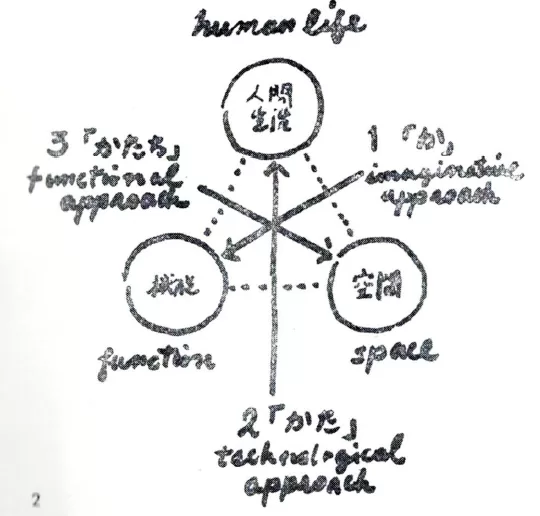 human life
人間
生活
3「かたち」
functional
approach
1「か」
imaginative
approach
機能
function
空間
space
2「かた」
technological
approach
2